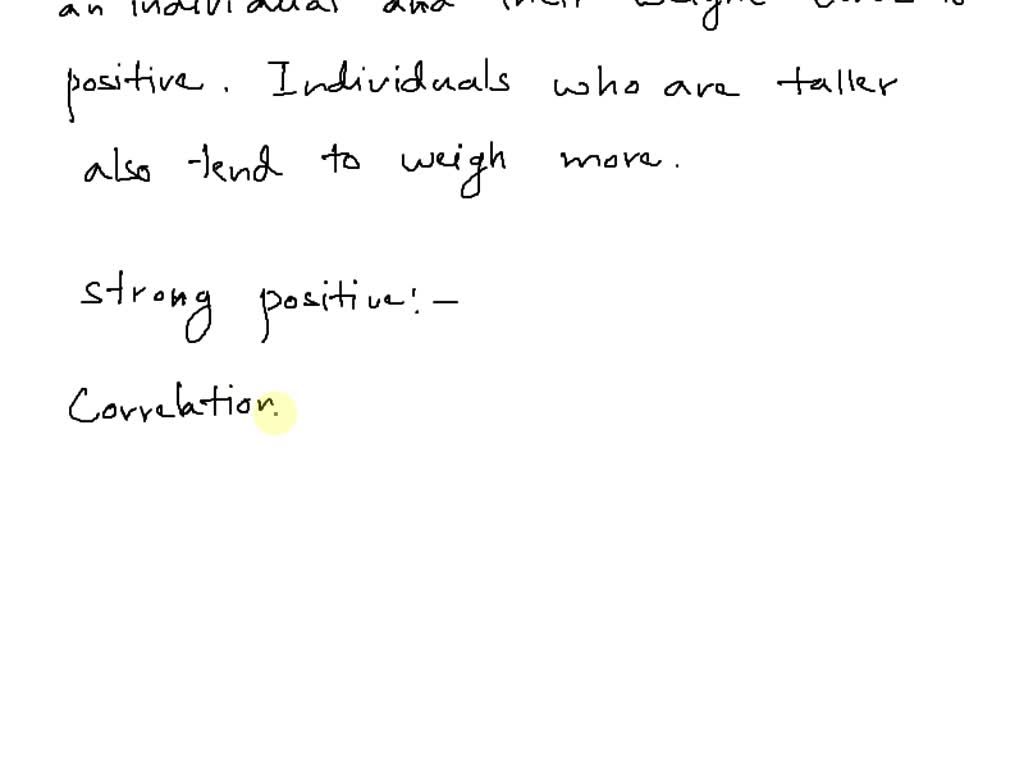 an individual and their weight tends to
positive. Individuals who are taller
also tend to weigh more.
strong positive:-
Correlation.